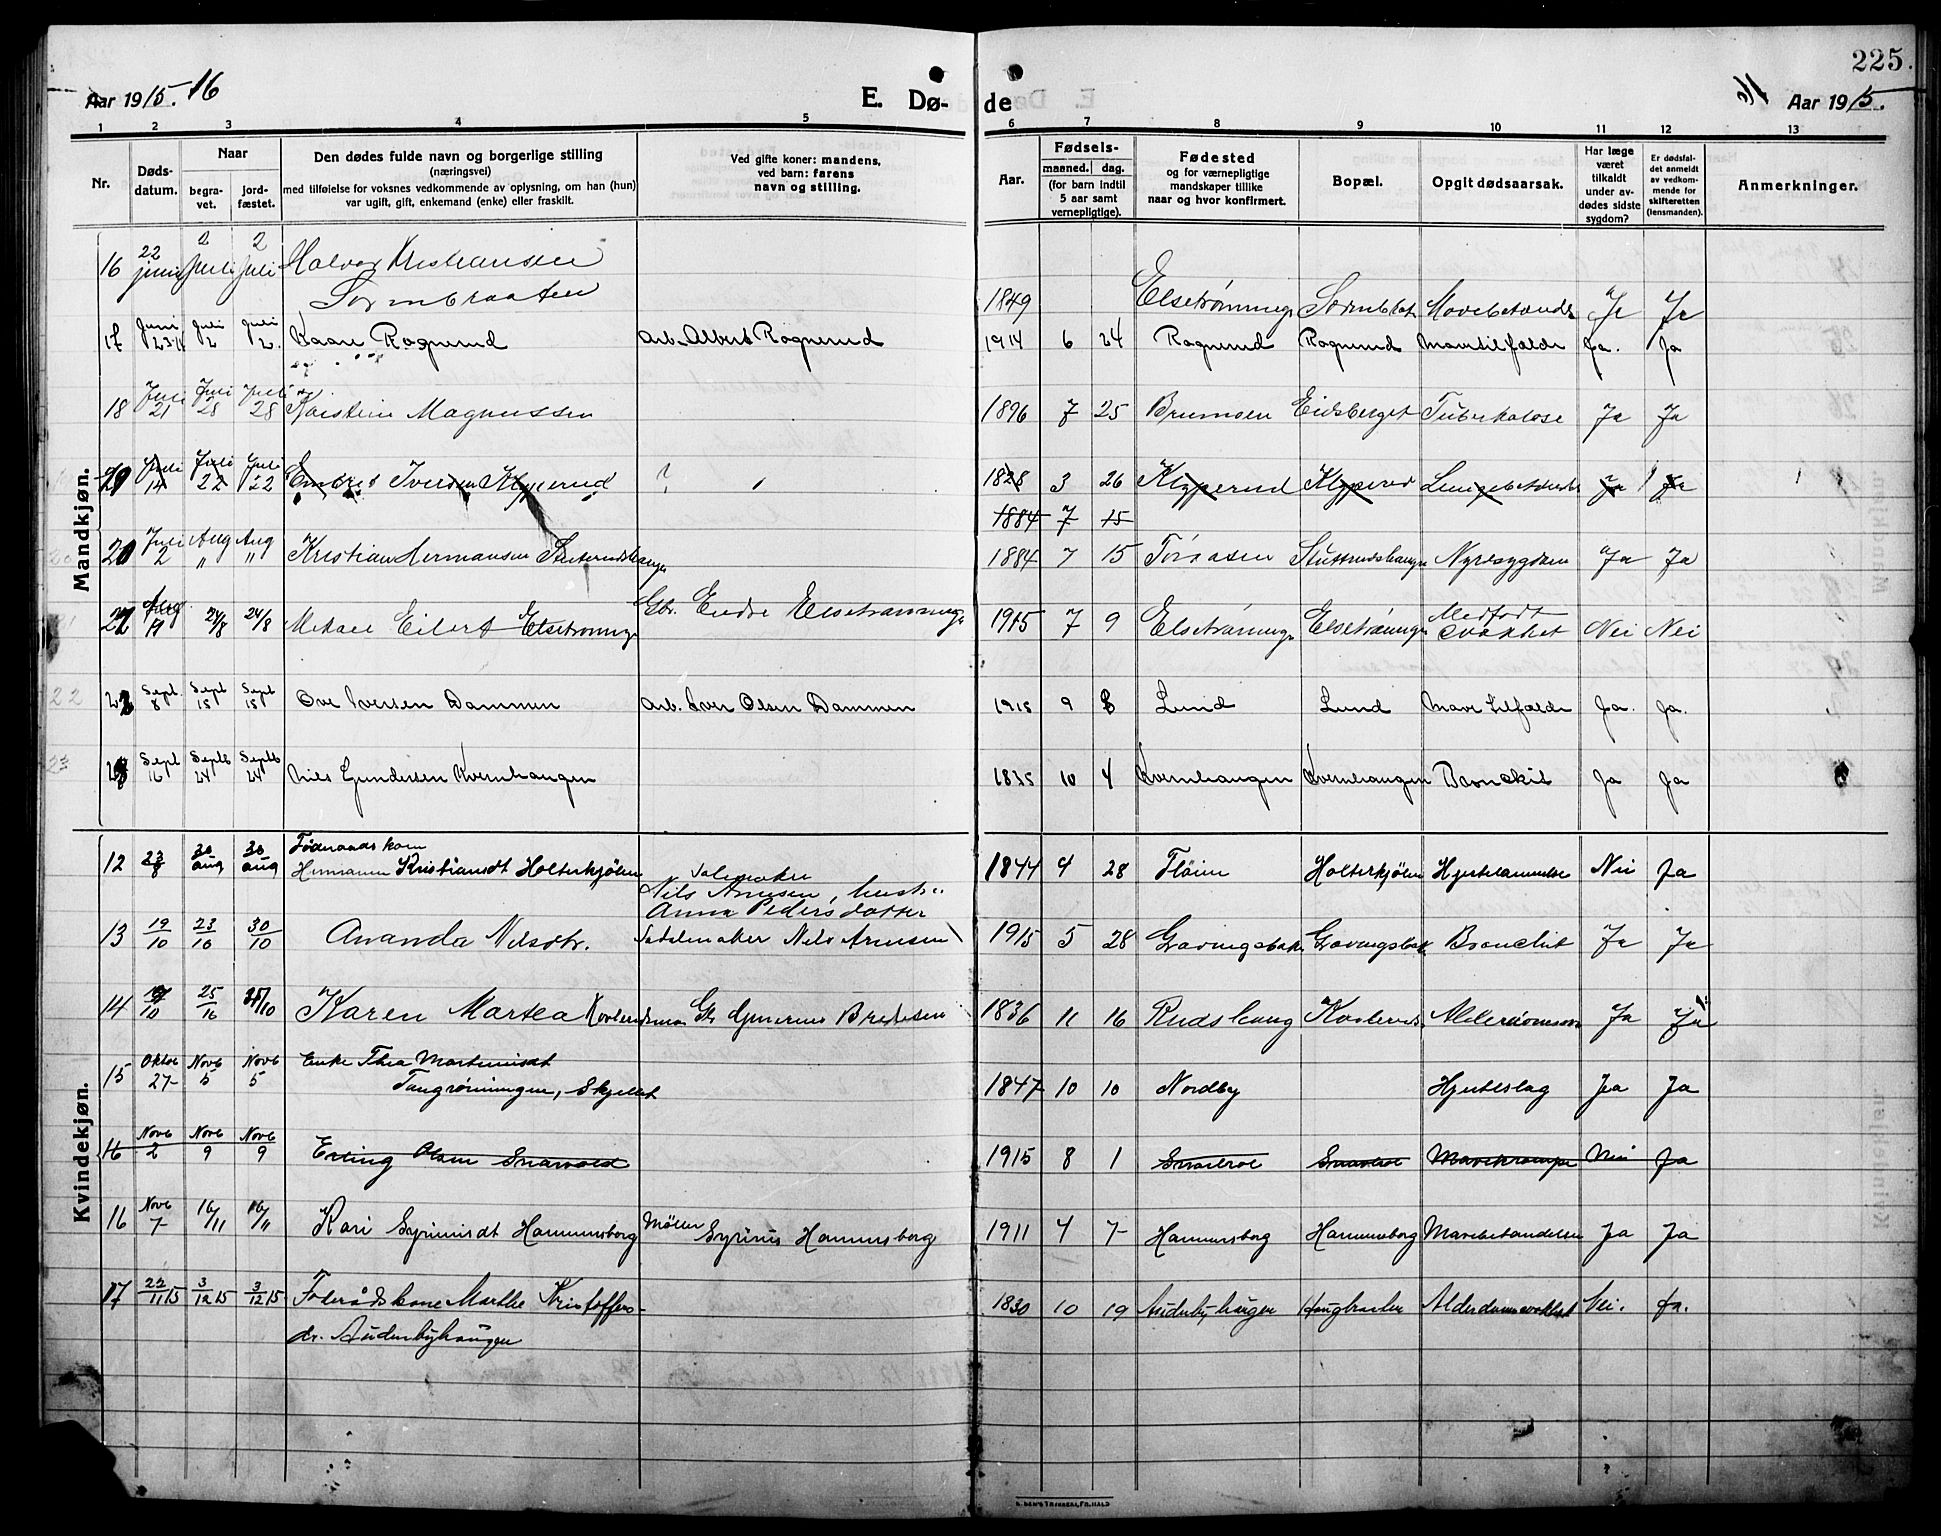 225.
Aar 1915. 16
E. Dø-
de
16 Aar 1915.
1 2 3 4 5 6 7 8 9 10 11 12 13
Nr.
Døds-
datum.
Naar
begra-
vet.
jord-
fæstet.
Den dødes fulde navn og borgerlige stilling
(næringsvei)
med tilføielse for voksnes vedkommende av oplysning, om han (hun)
var ugift, gift, enkemand (enke) eller fraskilt.
Ved gifte koner: mandens,
ved barn: farens
navn og stilling.
Aar.
Fødsels-
maaned. dag.
(for barn indtil
5 aar samt
vernepligtige).
Fødested
og for værnepligtige
mandskaper tillike
naar og hvor konfirmert.
Bopæl.
Opgit dødsaarsak.
Har læge
været
tilkaldt
under av-
dødes sidste
sygdom?
Er dødsfal-
det anmeldt
av vedkom-
mende for
skifteretten
(lensmanden).
Anmerkninger.
Mandkjøn.
16 22 juni 2 Juli 2 Juli Halvor Kristiansen
1849 Ja Ja
17 Juni 23 Juli 2 Juli 2. Kaare Rognerud Arb. Albert Rognerud 1914 6 24 Rognerud Rognerud Mavetilfælde Ja. Ja
18 Juli 21 Juli 28 Juli 28 Karstein Magnussen 1896 7 25 Eidsberget Tuberkulose Ja Ja
Juli 14 Juli 22 Juli 22 Iversen Klyperud ? 1828 3 26 Klyperud Klyperud Ja Ja
1884 7 15
20 Juli 2 Aug " Aug " Kristian Hermansen 1884 7 15 Nyresygdom Ja Ja
24/8 24/8 Eilert Elsetrønning Gbr. Endre Elsetrønning 1915 7 9 Elsetrønning Elsetrønning Medfødt svakhet Nei Nei
22 Sept. 8 Sept 15 Sept 15 Ove Iversen Dammen Arb. Iver Olsen Dammen 1915 9 Lund Lund Mave tilfælde Ja. Ja.
23 Sept 16 Septb 24 Septb 24 Nils Gundersen Kvernhaugen 1835 10 4 Kvernhaugen Kvernhaugen Bronckit Ja Ja
Kvindekjøn.
12 23/8 30 aug 30 aug Føderaadskone
Kristiansdt Holterkjølen 1844 4 28 Fløien Holterkjølen Nei Ja
Salmaker
Nils Arnesen, hust.
Anna Pedersdatter
13 19/10 23/10 30/10 Ananda Nilsdtr. Sadelmaker Nils Arnesen 1915 5 28 Bronchit Ja Ja
14 25/10 Karen Martea 1836 11 16 Rudshaug Ja Ja
15 Oktob 27 Novb 5 Novb 5 Enke Thea Martinusdt
Tangrønningen, Skjellet 1847 10 10 Nordby Hjerteslag Ja Ja
16 Novb 2 Novb 9 Novb 9 Erling Olsen 1915 8 1 Mavekrampe Nei Ja
16 Novb 7 16/11 16/11 Kari Syrinusdt Hammersborg Møller Syrinus Hammersborg 1911 4 7 Hammersborg Hammersborg Mavebetændelse Ja Ja
17 22/11 15 3/12 15 3/12 15 Føderådskone Marthe Kristoffers-
dr. Auderbyhaugen 1830 10 19 Auderbyhaugen Alderdomssvakhet Nei. Ja.